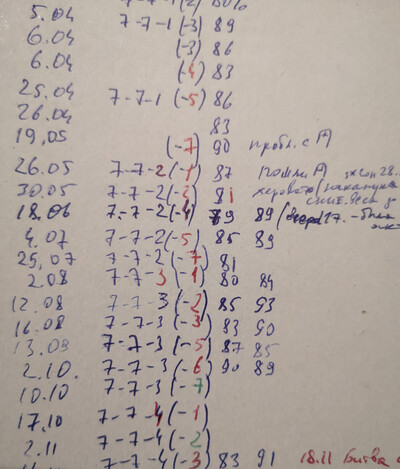 7-7-1(2) 80%
5.04 7-7-1 (-3) 89
6.04 (-3) 86
6.04 (-4) 83
25.04 7-7-1 (-5) 86
26.04 83
19,05 (-7) 90 пробл. с А)
26.05 7-7-2 (-1) 87
30.05 7-7-2 (-2) 81
18.06 7-7-2 (-4) 79 89
4.07 7-7-2 (-5) 85 89
25,07 7-7-2 (-7) 81
2.08 7-7-3 (-1) 80 84
12.08 7-7-3 (-2) 85 93
16.08 7-7-3 (-3) 83 90
13.09 7-7-3 (-5) 87 85
2.10. 7-7-3 (-6) 90 89
10.10 7-7-3 (-7)
17,10 7-7-4 (-1)
2.11 7-7-4 (-2)
7-7-4 (-3) 83 91 18.11 Битва